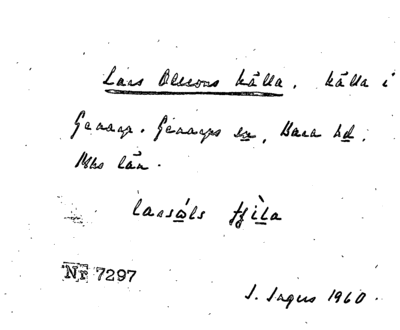 Lars Olssons källa, källa i
Granarp. Granarps sn, Bara hd.
Mhs län.
laṛsọ́ls tjịla
Nr 7297
J. Ingers 1960.